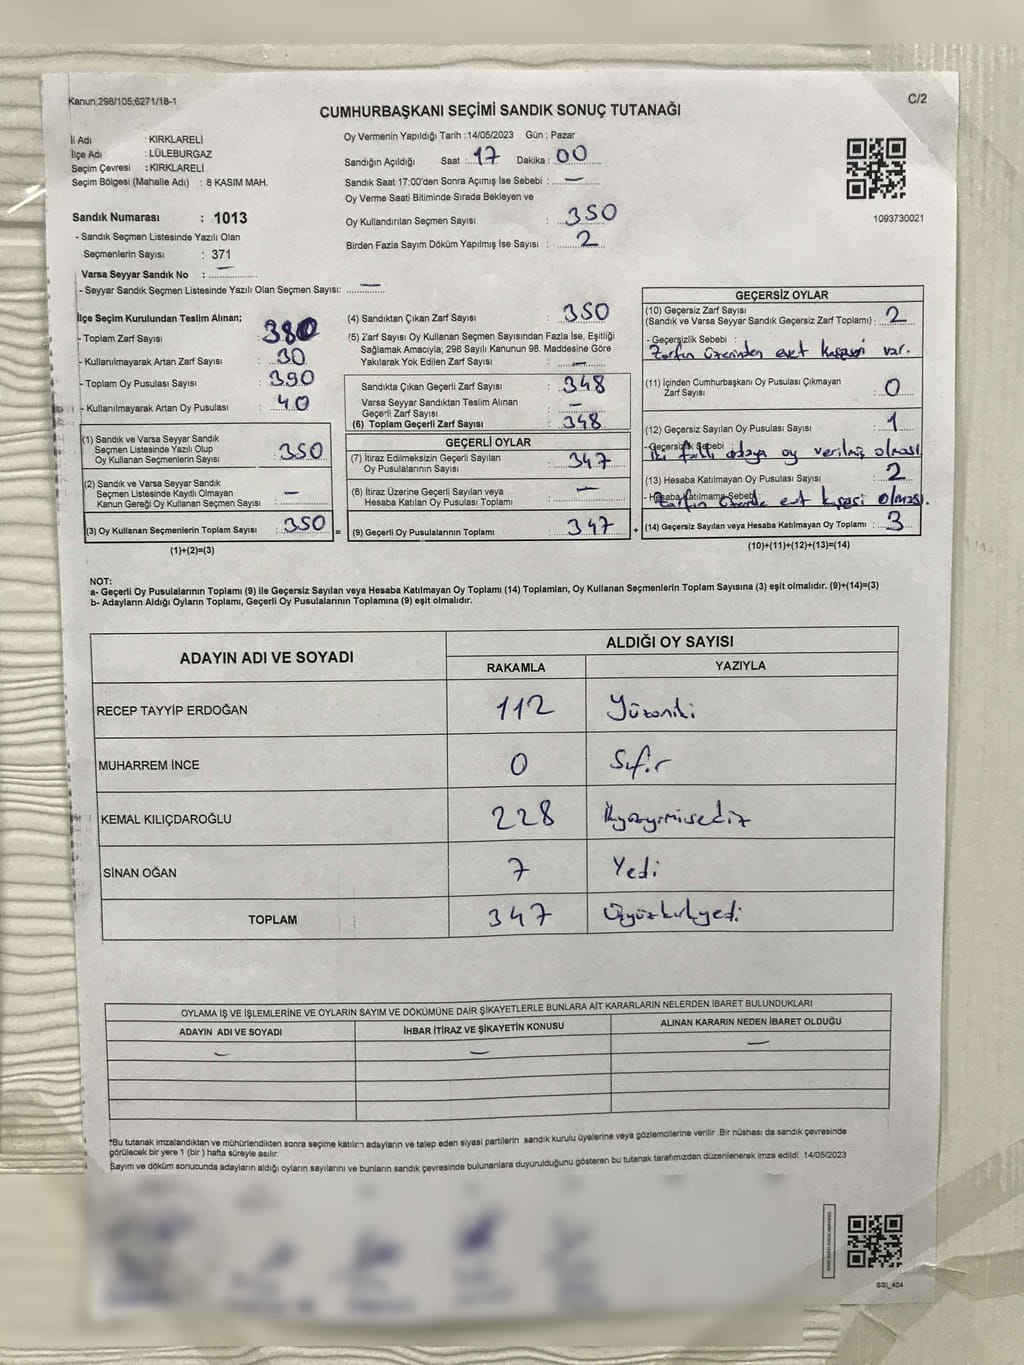 Kanun;298/105;6271/18-1
C/2
CUMHURBAŞKANI SEÇİMİ SANDIK SONUÇ TUTANAĞI
İl Adı : KIRKLARELİ
İlçe Adı : LÜLEBURGAZ
Seçim Çevresi : KIRKLARELİ
Seçim Bölgesi (Mahalle Adı) : 8 KASIM MAH.
Sandık Numarası : 1013
- Sandık Seçmen Listesinde Yazılı Olan
Seçmenlerin Sayısı : 371
Varsa Seyyar Sandık No : —
- Seyyar Sandık Seçmen Listesinde Yazılı Olan Seçmen Sayısı: —
Oy Vermenin Yapıldığı Tarih :14/05/2023 Gün : Pazar
Sandığın Açıldığı Saat : 17 Dakika : 00
Sandık Saat 17:00'den Sonra Açımış İse Sebebi : —
Oy Verme Saati Bitiminde Sırada Bekleyen ve
Oy Kullandırılan Seçmen Sayısı : 350
Birden Fazla Sayım Döküm Yapılmış İse Sayısı : 2
1093730021
İlçe Seçim Kurulundan Teslim Alınan;
- Toplam Zarf Sayısı : 380
- Kullanılmayarak Artan Zarf Sayısı : 30
- Toplam Oy Pusulası Sayısı : 390
- Kullanılmayarak Artan Oy Pusulası : 40
(1) Sandık ve Varsa Seyyar Sandık
Seçmen Listesinde Yazılı Olup
Oy Kullanan Seçmenlerin Sayısı : 350
(2) Sandık ve Varsa Seyyar Sandık
Seçmen Listesinde Kayıtlı Olmayan
Kanun Gereği Oy Kullanan Seçmen Sayısı : —
(3) Oy Kullanan Seçmenlerin Toplam Sayısı : 350 =
(1)+(2)=(3)
(4) Sandıktan Çıkan Zarf Sayısı : 350
(5) Zarf Sayısı Oy Kullanan Seçmen Sayısından Fazla İse, Eşitliği
Sağlamak Amacıyla; 298 Sayılı Kanunun 98. Maddesine Göre
Yakılarak Yok Edilen Zarf Sayısı : —
Sandıkta Çıkan Geçerli Zarf Sayısı : 348
Varsa Seyyar Sandıktan Teslim Alınan
Geçerli Zarf Sayısı : —
(6) Toplam Geçerli Zarf Sayısı : 348
GEÇERLİ OYLAR
(7) İtiraz Edilmeksizin Geçerli Sayılan
Oy Pusulalarının Sayısı : 347
(8) İtiraz Üzerine Geçerli Sayılan veya
Hesaba Katılan Oy Pusulası Toplamı : —
(9) Geçerli Oy Pusulalarının Toplamı : 347 +
GEÇERSİZ OYLAR
(10) Geçersiz Zarf Sayısı
(Sandık ve Varsa Seyyar Sandık Geçersiz Zarf Toplamı) : 2
- Geçersizlik Sebebi :
Zarfın üzerinden evet kaşesi var.
(11) İçinden Cumhurbaşkanı Oy Pusulası Çıkmayan
Zarf Sayısı : 0
(12) Geçersiz Sayılan Oy Pusulası Sayısı : 1
- Geçersizlik Sebebi
İki farklı adaya oy verilmiş olması
(13) Hesaba Katılmayan Oy Pusulası Sayısı : 2
- Hesaba Katılmama Sebebi
Zarfın üzerinde evet kaşesi olması.
(14) Geçersiz Sayılan veya Hesaba Katılmayan Oy Toplamı : 3
(10)+(11)+(12)+(13)=(14)
NOT:
a- Geçerli Oy Pusulalarının Toplamı (9) ile Geçersiz Sayılan veya Hesaba Katılmayan Oy Toplamı (14) Toplamları, Oy Kullanan Seçmenlerin Toplam Sayısına (3) eşit olmalıdır. (9)+(14)=(3)
b- Adayların Aldığı Oyların Toplamı, Geçerli Oy Pusulalarının Toplamına (9) eşit olmalıdır.
ADAYIN ADI VE SOYADI ALDIĞI OY SAYISI
RAKAMLA YAZIYLA
RECEP TAYYİP ERDOĞAN 112 Yüzoniki
MUHARREM İNCE 0 Sıfır
KEMAL KILIÇDAROĞLU 228 İkiyüzyirmisediz
SİNAN OĞAN 7 Yedi
TOPLAM 347 Üçyüzkırkyedi
OYLAMA İŞ VE İŞLEMLERİNE VE OYLARIN SAYIM VE DÖKÜMÜNE DAİR ŞİKAYETLERLE BUNLARA AİT KARARLARIN NELERDEN İBARET BULUNDUKLARI
ADAYIN ADI VE SOYADI İHBAR İTİRAZ VE ŞİKAYETİN KONUSU ALINAN KARARIN NEDEN İBARET OLDUĞU
— — —
*Bu tutanak imzalandıktan ve mühürlendikten sonra seçime katılan adayların ve talep eden siyasi partilerin sandık kurulu üyelerine veya gözlemcilerine verilir .Bir nüshası da sandık çevresinde
görülecek bir yere 1 (bir ) hafta süreyle asılır.
Sayım ve döküm sonucunda adayların aldığı oyların sayılarını ve bunların sandık çevresinde bulunanlara duyurulduğunu gösteren bu tutanak tarafımızdan düzenlenerek imza edildi. 14/05/2023
SSİ_404